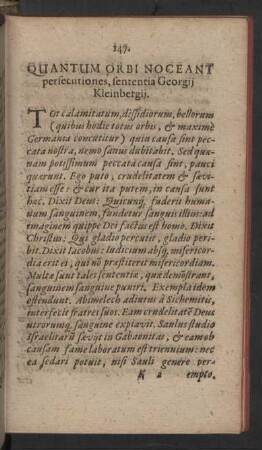 147.
QUANTUM ORBI NOCEANT
persecutiones, sententia Georgij
Kleinbergij.
TOt calamitatum, dissidiorum, bellorum
(quibus hodie totus orbis, & maximè
Germania concutitur) quin causa sint pec-
cata nostra, nemo sanus dubitabit. Sed quæ-
nam potissimum peccata causa sint, pauci
quærunt. Ego puto, crudelitatem & sæui-
tiam esse: & cur ita putem, in causa sunt
hæc. Dixit Deus: Quicunq; fuderit huma-
num sanguinem, fundetur sanguis illius: ad
imaginem quippe Dei factus est homo. Dixit
Christus: Qui gladio percutit, gladio peri-
bit. Dixit Iacobus: Iudicium absq; misericor-
dia erit ei, qui nõ præstiterit misericordiam.
Multæ sunt tales sententiæ, quæ demõstrant,
sanguinem sanguine puniri. Exempla idem
ostendunt. Abimelech adiutus à Sichemitis,
interfecit fratres suos. Eam crudelitatẽ Deus
utrorumq; sanguine expiavit. Saulus studio
Israelitarũ sævijt in Gabaonitas, & eam ob
causam fame laboratum est triennium: nec
ea sedari potuit, nisi Sauli genere per-
K 2 empto.